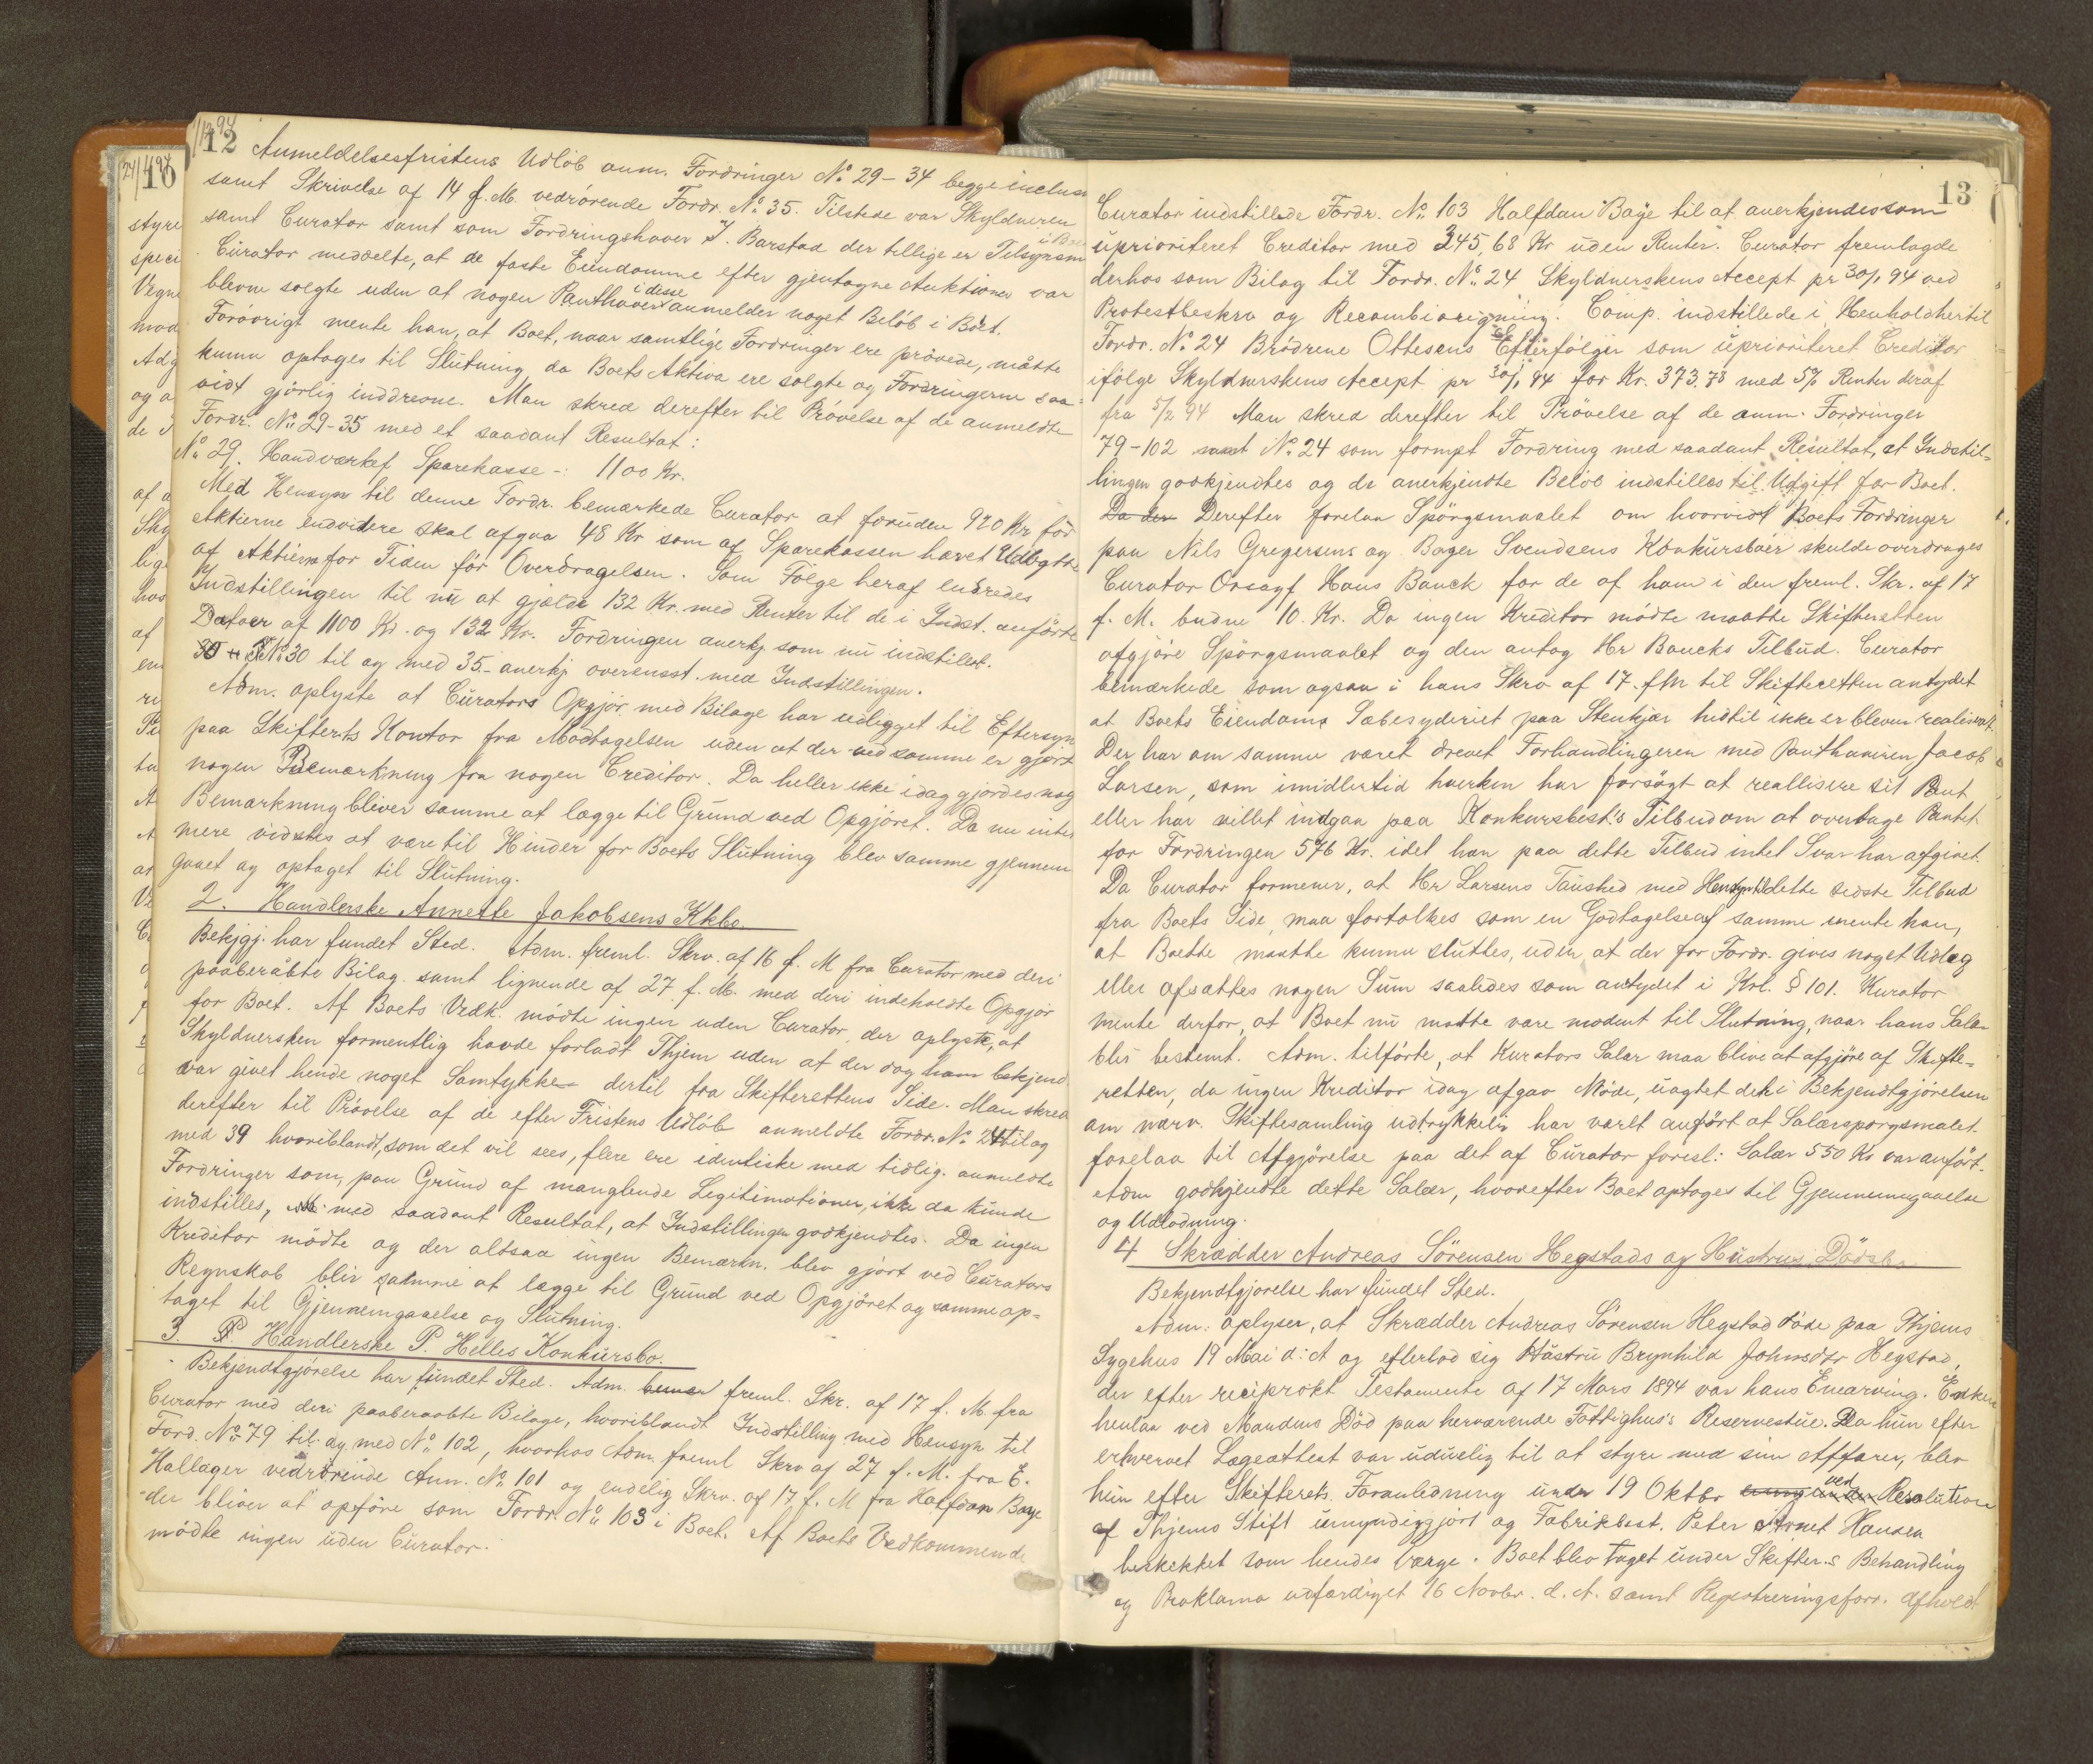 1/12 94
12
Anmeldelsesfristens Udløb anm. Fordringer No 29-34 begge inclus
samt Skrivelse af 14 f. M. vedrørende Fordr. No 35. Tilstede var Skyldneren
samt Curator samt som Fordringshaver J. Barstad der tillige er Tilsynsm
i Boet
Curator meddelte, at de faste Eiendomme efter gjentagne Auktioner var
blevne solgte uden at nogen Panthaver i disse anmelder noget Beløb i Boet.
Forøvrigt mente han, at Boet, naar samtlige Fordringer ere prøvede, måtte
kunne optages til Slutning, da Boets Aktiva ere solgte og Fordringerne saa
vidt gjørlig inddrevne. Man skred derefter til Prøvelse af de anmeldte
Fordr. No 29-35 med et saadant Resultat:
No 29. Handværkef Sparekasse -: 1100 Kr.
Med Hensyn til denne Fordr. bemærkede Curator at foruden 920 Kr for
Aktierne endvidere skal afgaa 48 Kr som af Sparekassen hævet Udbytte
af Aktierne for Tiden før Overdragelsen. Som Følge heraf endredes
Indstillingen til nu at gjælde 132 Kr. med Renter til de i Indst. anførte
Datoer af 1100 Kr. og 132 Kr. Fordringen anerkj. som nu indstillet.
No 30 til og med 35 anerkj overensst. med Indstillingen.
Adm. oplyste at Curators Opgjør med Bilage har udligget til Eftersyn
paa Skifterets Kontor fra Modtagelsen uden at der ved samme er gjort
nogen Bemærkning fra nogen Creditor. Da heller ikke idag gjordes nog
Bemærkning bliver samme at lægge til Grund ved Opgjøret. Da nu intet
mere vidstes at være til Hinder for Boets Slutning blev samme gjennem
gaaet og optaget til Slutning.
2. Handlerske Annette Jakobsens Kkbo.
Bekjgj. har fundet Sted. Adm. freml. Skrv. af 16 f. M fra Curator med deri
paaberåbte Bilag samt lignende af 27 f. M. med deri indeholdte Opgjør
for Boet. Af Boets Vedk. mødte ingen uden Curator, der oplyste, at
Skyldnersken formentlig havde forladt Thjem uden at der dog bekjend
var givet hende noget Samtykke dertil fra Skifterettens Side. Man skred
derefter til Prøvelse af de efter Fristens Udløb anmeldte Fordr. No 24 til og
med 39 hvoriblandt, som det vil sees, flere ere identiske med tidlig. anmeldte
Fordringer som, paa Grund af manglende Legitimationer, ikke da kunde
indstilles, med saadant Resultat, at Indstillingen godkjendtes. Da ingen
Kreditor mødte og der altsaa ingen Bemærkn. blev gjort ved Curators
Regnskab blir samme at lægge til Grund ved Opgjøret og samme op=
taget til Gjennemgaaelse og Slutning.
3. Handlerske P. Helles Konkursbo.
Bekjendtgjørelse har fundet Sted. Adm. freml. Skr. af 17 f. M. fra
Curator med deri paaberaabte Bilage, hvoriblandt Indstilling med Hensyn til
Ford. No 79 til og med No 102, hvorhos Adm. freml Skrv af 27 f. M. fra E.
Hallager vedrørende Anm. No 101 og endelig Skrv. af 17 f. M fra Halfdan Baye
der bliver at opføre som Fordr. No 103 i Boet. Af Boets Vedkommende
mødte ingen uden Curator.
13
Curator indstillede Fordr. No 103 Halfdan Baye til at anerkjendes som
uprioriteret Creditor med 345,68 Kr uden Renter. Curator fremlagde
derhos som Bilag til Fordr. No 24 Skyldnerskens Accept pr 30/1 94 ved
Protestbeskrv og Recambioregning. Comp. indstillede i Henhold hertil
Fordr. No 24 Brødrene Ottesens Efterfølger som uprioriteret Creditor
ifølge Skyldnerskens Accept pr 30/1 94 for Kr. 373.78 med 5% Renter deraf
fra 5/2 94 Man skred derefter til Prøvelse af de anm. Fordringer
79-102 samt No 24 som formet Fordring med saadant Resultat, at Indstil=
lingen godkjendtes og de anerkjendte Beløb indstilles til Udgift for Boet.
Da der Derefter forelaa Spørgsmaalet om hvorvidt Boets Fordringer
paa Nils Gregersens og Bager Svendsens Konkursboer skulde overdrages
Curator Orsagf Hans Bauck for de af ham i den freml. Skr. af 17
f. M. budne 10 Kr. Da ingen Kreditor mødte maatte Skifteretten
afgjøre Spørgsmaalet og den antog Hr Baucks Tilbud. Curator
bemærkede som ogsaa i hans Skrv af 17. f M til Skifteretten antydet
at Boets Eiendoms Sæbesyderiet paa Stenkjær hidtil ikke er bleven realiseret.
Der har om samme været drevet Forhandlingeren med Panthaveren Jacob
Larsen, som imidlertid hverken har forsøgt at reallisere sit Pant
eller har villet indgaa paa Konkursbest's Tilbud om at overtage Pantet
for Fordringen 576 Kr. idet han paa dette Tilbud intet Svar har afgivet.
Da Curator formener, at Hr Larsens Taushed med Hensyn til dette sidste Tilbud
fra Boets Side, maa fortolkes som en Godtagelse af samme mente han,
at Boette maatte kunne sluttes, uden at der for Fordr. gives noget Udlæg
eller afsættes nogen Sum saaledes som antydet i Krl. § 101. Kurator
mente derfor, at Boet nu maatte være modent til Slutning, naar hans Salær
blir bestemt. Adm. tilførte, at Kurators Salær maa blive at afgjøre af Skifte=
retten, da ingen Kreditor idag afgav Møde, uagtet det i Bekjendtgjørelsen
om nærv. Skiftesamling udtrykkelig har været anført at Salærspørgsmalet
forelaa til Afgjørelse paa det af Curator foresl: Salær 550 Kr var anført.
Adm godkjendte dette Salær, hvorefter Boet optages til Gjennemgaaelse
og Udlodning.
4 Skrædder Andreas Sörensen Hegstads og Hustrus Dödsb.
Bekjendtgjørelse har fundet Sted.
Adm. oplyser, at Skrædder Andreas Sörensen Hegstad døde paa Thjems
Sygehus 19 Mai d: A og efterlod sig Hustru Brynhild Johnsdtr Hegstad,
der efter reciprokt Testamente af 17 Mars 1894 var hans Enearving. Enken
henlaa ved Mandens Død paa herværende Fattighus's Reservestue. Da hun efter
erhvervet Lægeattest var uduelig til at styre med sine Affarer, blev
hun efter Skifterets. Foranledning under 19 Oktbr ved Resolution
af Thjems Stift umyndiggjort og Fabrikbest. Peter Arnet Hansen
beskikket som hendes Værge. Boet blev taget under Skifter.s Behandling
og Proklama udfærdiget 16 Novbr. d. A. samt Registreringsforr. afholdt
24/11 94
10